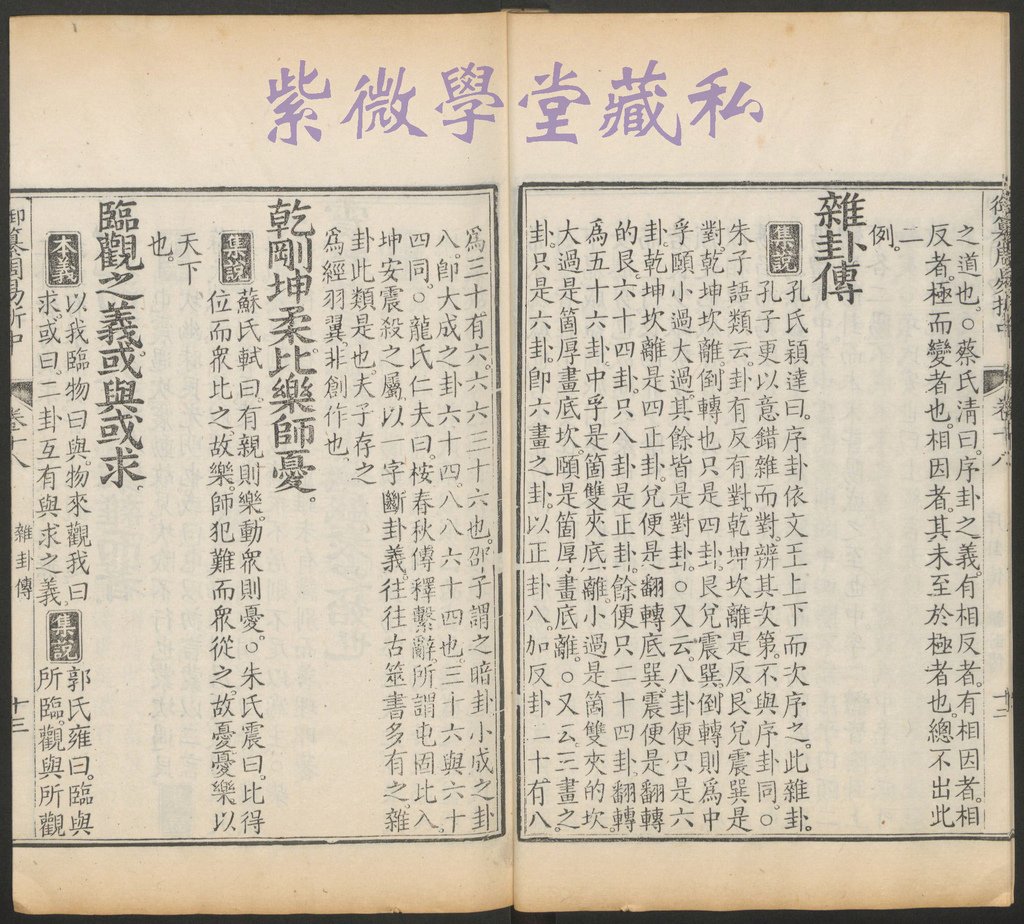 紫微學堂藏私
御纂周易折中 卷十八 十二
之道也。○蔡氏清曰。序卦之義。有相反者。有相因者。相
反者。極而變者也。相因者。其未至於極者也。總不出此
二
例。
雜卦傳
集說 孔氏穎達曰。序卦依文王上下而次序之。此雜卦。
孔子更以意錯雜而對。辨其次第。不與序卦同。○
朱子語類云。卦有反有對。乾坤坎離是反。艮兌震巽是
對。乾坤坎離。倒轉也只是四卦。艮兌震巽。倒轉則為中
孚頤小過大過。其餘皆是對卦。○又云。八卦便只是六
卦。乾坤坎離是四正卦。兌便是翻轉底巽。震便是翻轉
的艮。六十四卦。只八卦是正卦。餘便只二十四卦。翻轉
為五十六卦。中孚是箇雙夾底離。小過是箇雙夾的坎
大過是箇厚畫底坎。頤是箇厚畫底離。○又云。三畫之
卦。只是六卦。即六畫之卦。以正卦八。加反卦二十有八。
為三十有六。六六三十六也。邵子謂之暗卦。小成之卦
八。即大成之卦六十四。八八六十四也。三十六與六十
四同。○龍氏仁夫曰。桉春秋傳釋繫辭。所謂屯固比入。
坤安震殺之屬。以一字斷卦義。往往古筮書多有之。雜
卦此類是也。夫子存之
為經羽翼。非創作也。
乾剛坤柔。比樂師憂。
集說 蘇氏軾曰。有親則樂。動衆則憂。○朱氏震曰。比得
位而衆比之。故樂。師犯難而衆從之。故憂。憂樂以
天下
也。
臨觀之義。或與或求。
本義 以我臨物曰與。物來觀我曰
求。或曰。二卦互有與求之義。
集說 郭氏雍曰。臨與
所臨。觀與所觀
御纂周易折中 卷十八 雜卦傳 十三